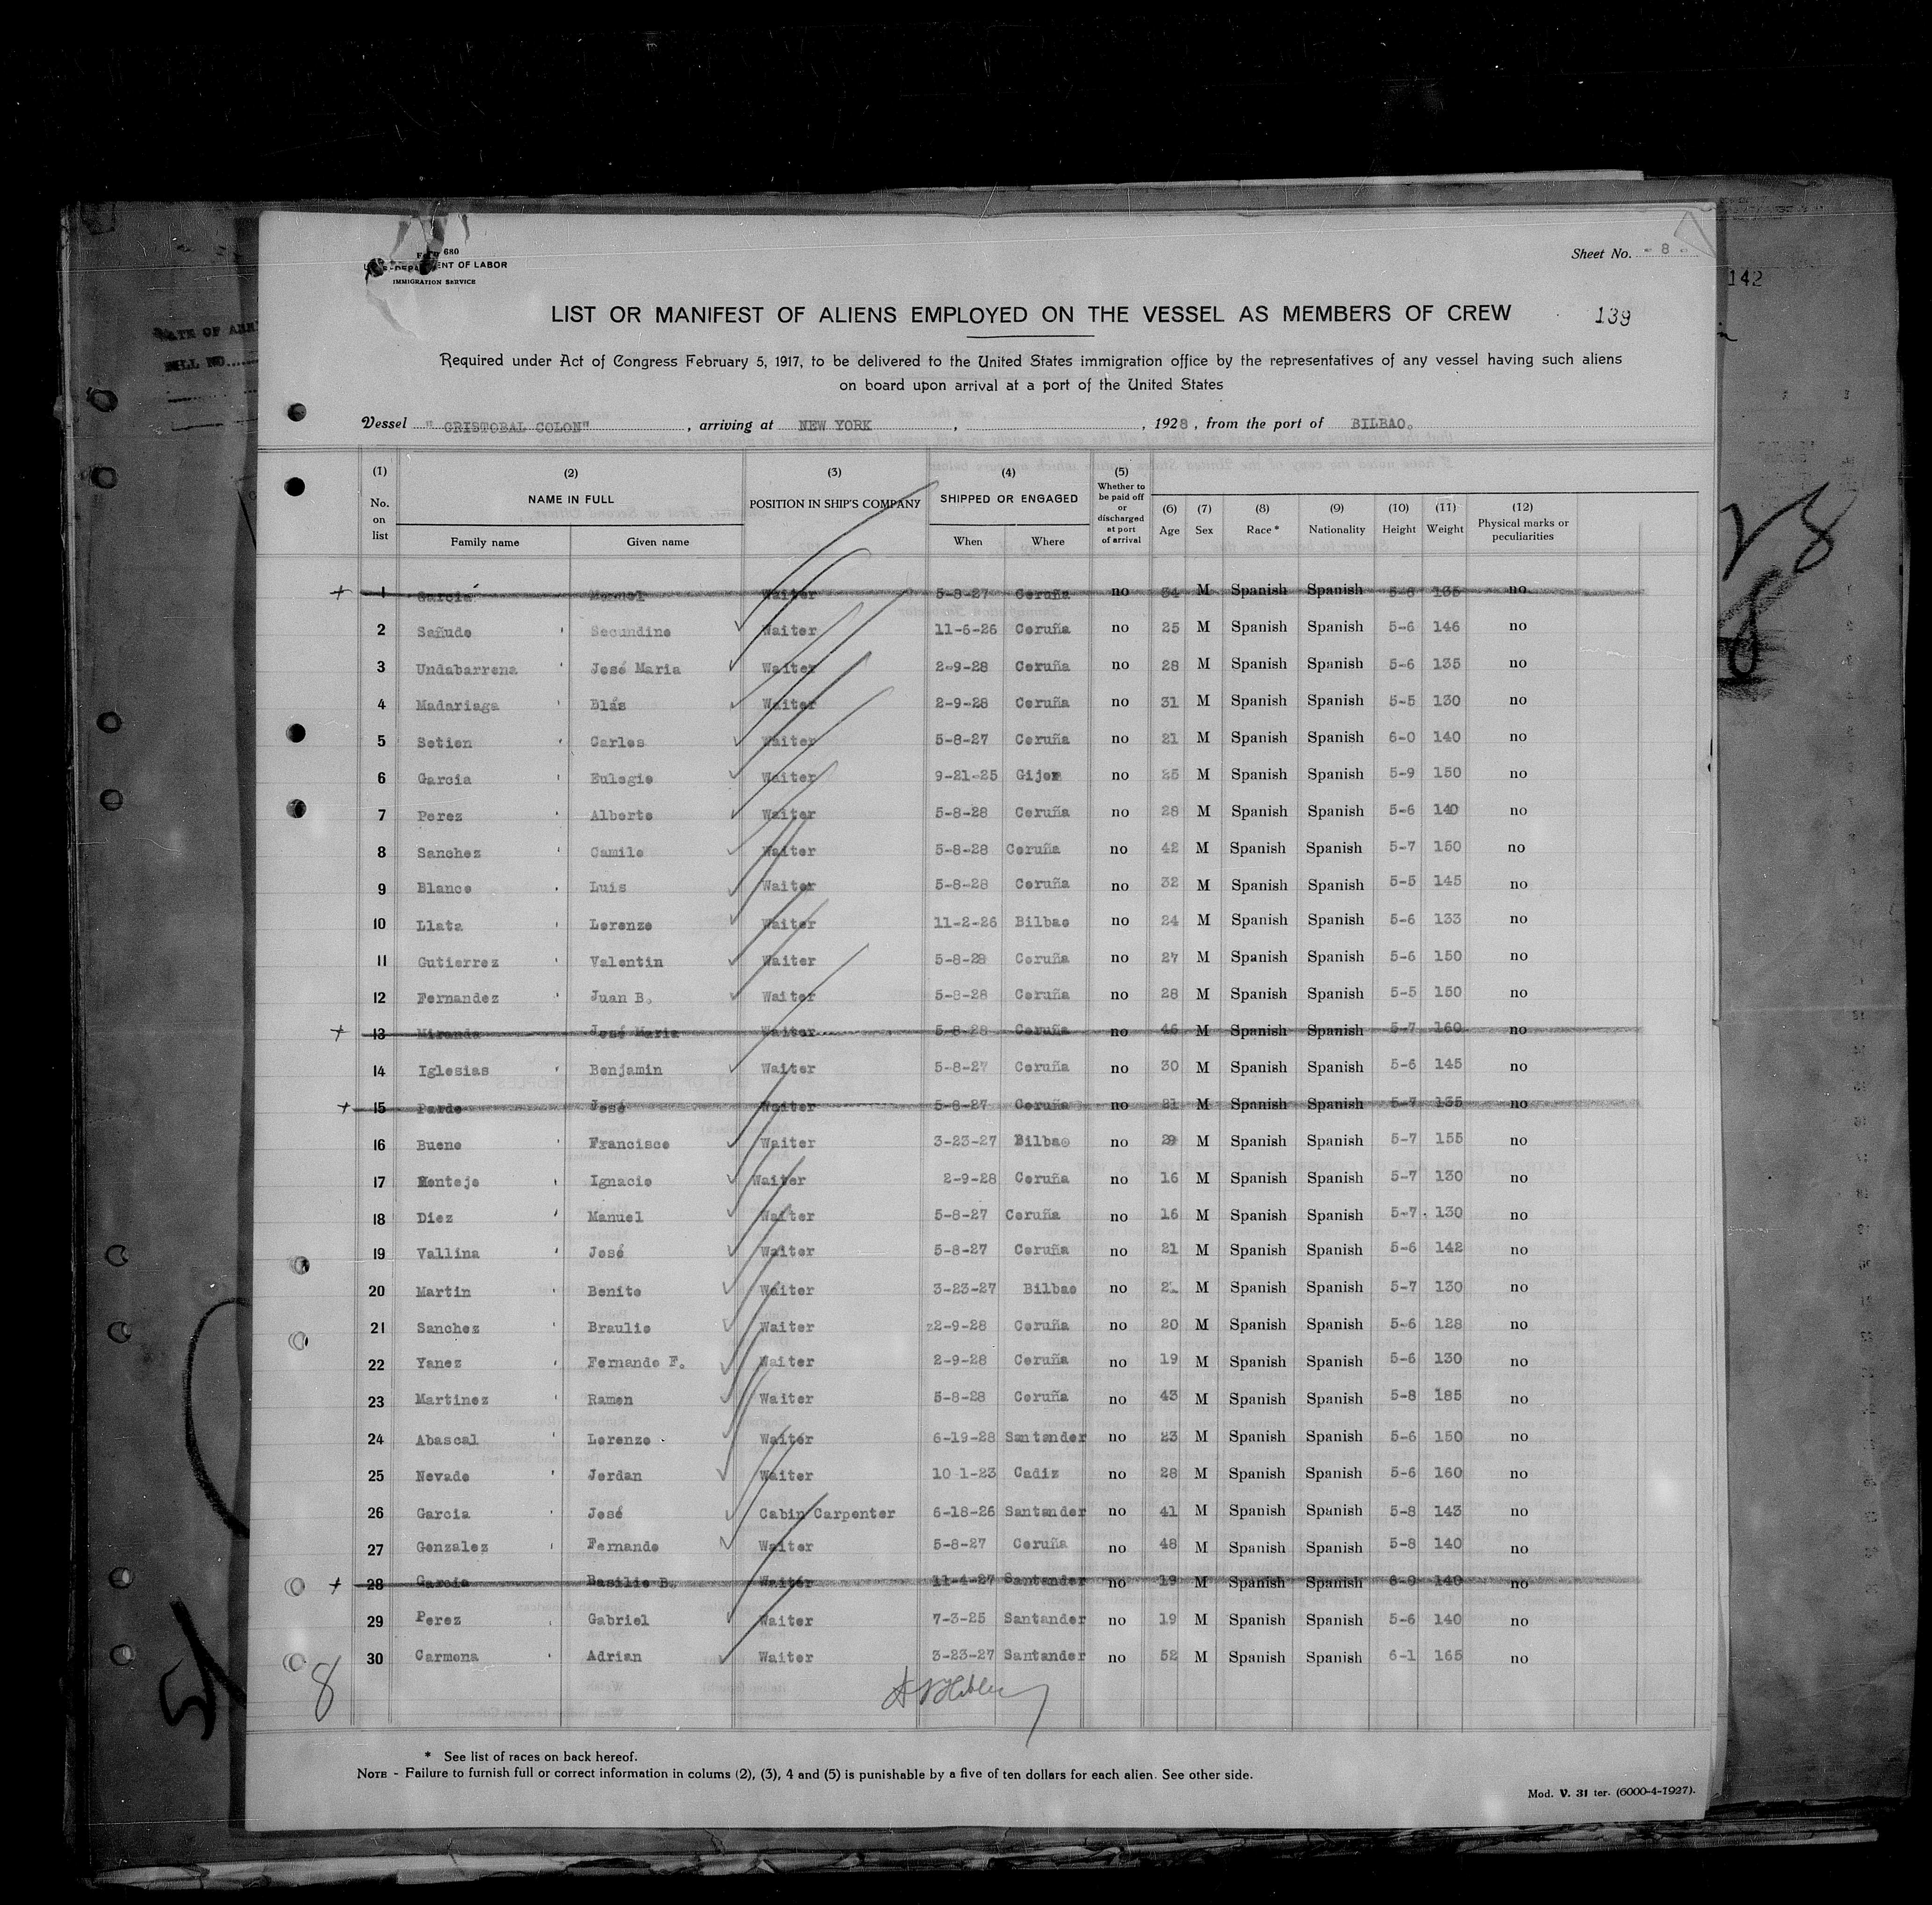 Form 680
U. S. DEPARTMENT OF LABOR
IMMIGRATION SERVICE
Sheet No. - 8 -
LIST OR MANIFEST OF ALIENS EMPLOYED ON THE VESSEL AS MEMBERS OF CREW
139
142
Required under Act of Congress February 5, 1917, to be delivered to the United States immigration office by the representatives of any vessel having such aliens
on board upon arrival at a port of the United States
Vessel " CRISTOBAL COLON" , arriving at NEW YORK , , 1928 , from the port of BILBAO.
(1) No. on list (2) NAME IN FULL Family name Given name (3) POSITION IN SHIP'S COMPANY (4) SHIPPED OR ENGAGED When Where (5) Whether to be paid off or discharged at port of arrival (6) Age (7) Sex (8) Race * (9) Nationality (10) Height (11) Weight (12) Physical marks or peculiarities
+ 1 Garcia Manuel Waiter 5-8-27 Coruña no 34 M Spanish Spanish 5-8 135 no
2 Sañudo Secundino Waiter 11-6-26 Coruña no 25 M Spanish Spanish 5-6 146 no
3 Undabarrena José Maria Waiter 2-9-28 Coruña no 28 M Spanish Spanish 5-6 135 no
4 Madariaga Blás Waiter 2-9-28 Coruña no 31 M Spanish Spanish 5-5 130 no
5 Setien Carlos Waiter 5-8-27 Coruña no 21 M Spanish Spanish 6-0 140 no
6 Garcia Eulogio Waiter 9-21-25 Gijon no 25 M Spanish Spanish 5-9 150 no
7 Perez Alberto Waiter 5-8-28 Coruña no 28 M Spanish Spanish 5-6 140 no
8 Sanchez Camilo Waiter 5-8-28 Coruña no 42 M Spanish Spanish 5-7 150 no
9 Blanco Luis Waiter 5-8-28 Coruña no 32 M Spanish Spanish 5-5 145 no
10 Llata Lorenzo Waiter 11-2-26 Bilbao no 24 M Spanish Spanish 5-6 133 no
11 Gutierrez Valentin Waiter 5-8-28 Coruña no 27 M Spanish Spanish 5-6 150 no
12 Fernandez Juan B. Waiter 5-8-28 Coruña no 28 M Spanish Spanish 5-5 150 no
+ 13 Miranda José Maria Waiter 5-8-28 Coruña no 46 M Spanish Spanish 5-7 160 no
14 Iglesias Benjamin Waiter 5-8-27 Coruña no 30 M Spanish Spanish 5-6 145 no
+ 15 Pardo José Waiter 5-8-27 Coruña no 21 M Spanish Spanish 5-7 135 no
16 Bueno Francisco Waiter 3-23-27 Bilbao no 29 M Spanish Spanish 5-7 155 no
17 Montejo Ignacio Waiter 2-9-28 Coruña no 16 M Spanish Spanish 5-7 130 no
18 Diez Manuel Waiter 5-8-27 Coruña no 16 M Spanish Spanish 5-7 130 no
19 Vallina José Waiter 5-8-27 Coruña no 21 M Spanish Spanish 5-6 142 no
20 Martin Benito Waiter 3-23-27 Bilbao no M Spanish Spanish 5-7 130 no
21 Sanchez Braulio Waiter 2-9-28 Coruña no 20 M Spanish Spanish 5-6 128 no
22 Yanez Fernando F. Waiter 2-9-28 Coruña no 19 M Spanish Spanish 5-6 130 no
23 Martinez Ramon Waiter 5-8-28 Coruña no 43 M Spanish Spanish 5-8 185 no
24 Abascal Lorenzo Waiter 6-19-28 Santander no 23 M Spanish Spanish 5-6 150 no
25 Nevado Jordan Waiter 10 1-23 Cadiz no 28 M Spanish Spanish 5-6 160 no
26 Garcia José Cabin Carpenter 6-18-26 Santander no 41 M Spanish Spanish 5-8 143 no
27 Gonzalez Fernando Waiter 5-8-27 Coruña no 48 M Spanish Spanish 5-8 140 no
+ 28 Garcia Basilio B. Waiter 11-4-27 Santander no 19 M Spanish Spanish 6-0 140 no
29 Perez Gabriel Waiter 7-3-25 Santander no 19 M Spanish Spanish 5-6 140 no
30 Carmona Adrian Waiter 3-23-27 Santander no 52 M Spanish Spanish 6-1 165 no
8
* See list of races on back hereof.
NOTE - Failure to furnish full or correct information in colums (2), (3), 4 and (5) is punishable by a five of ten dollars for each alien. See other side.
Mod. V. 31 ter. (6000-4-1927).